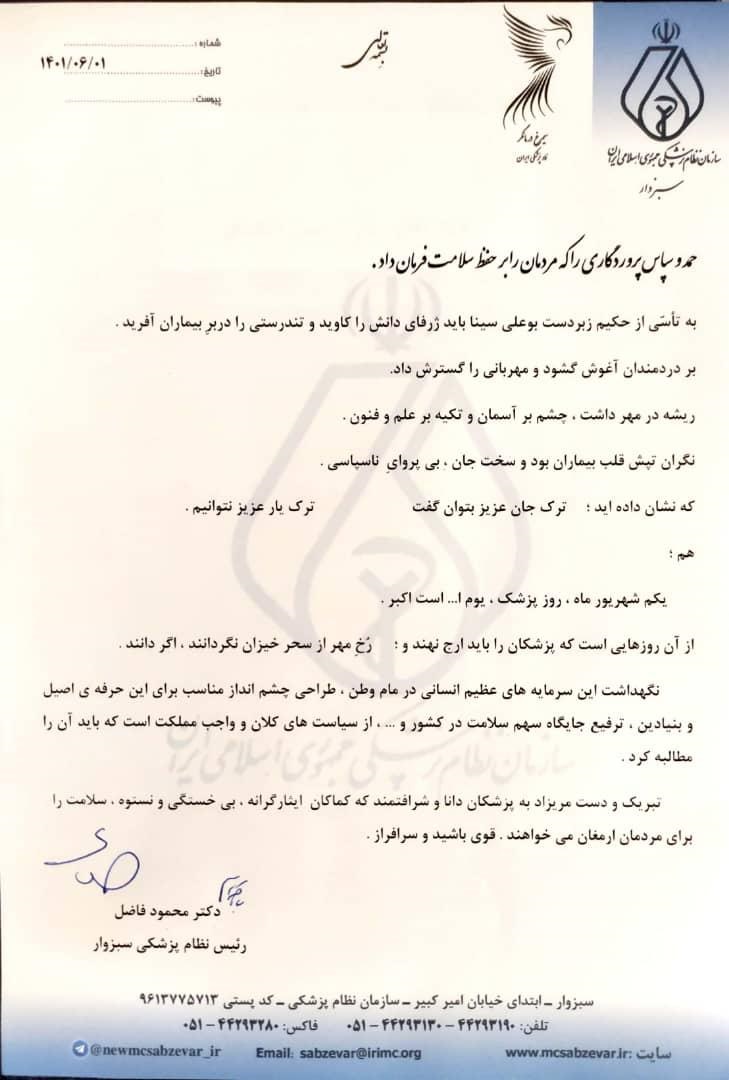 سازمان نظام پزشکی جمهوری اسلامی ایران
سبزوار
سیمرغ درمانگر
نماد پزشکی ایران
بسمه تعالی
شماره :
تاریخ: ۱۴۰۱/۰۶/۰۱
پیوست:
حمد و سپاس پروردگاری را که مردمان را بر حفظ سلامت فرمان داد .
به تأسّی از حکیم زبردست بوعلی سینا باید ژرفای دانش را کاوید و تندرستی را دربرِ بیماران آفرید .
بر دردمندان آغوش گشود و مهربانی را گسترش داد.
ریشه در مهر داشت ، چشم بر آسمان و تکیه بر علم و فنون .
نگران تپش قلب بیماران بود و سخت جان ، بی پروایِ ناسپاسی .
که نشان داده اید ؛ ترک جان عزیز بتوان گفت ترک یار عزیز نتوانیم .
هم ؛
یکم شهریور ماه ، روز پزشک ، یوم ا... است اکبر .
از آن روزهایی است که پزشکان را باید ارج نهند و ؛ رُخ مهر از سحر خیزان نگردانند ، اگر دانند .
نگهداشت این سرمایه های عظیم انسانی در مام وطن ، طراحی چشم انداز مناسب برای این حرفه ی اصیل
و بنیادین ، ترفیع جایگاه سهم سلامت در کشور و ... ، از سیاست های کلان و واجب مملکت است که باید آن را
مطالبه کرد .
تبریک و دست مریزاد به پزشکان دانا و شرافتمند که کماکان ایثارگرانه ، بی خستگی و نستوه ، سلامت را
برای مردمان ارمغان می خواهند . قوی باشید و سرافراز .
دکتر محمود فاضل
رئیس نظام پزشکی سبزوار
سازمان نظام پزشکی جمهوری اسلامی ایران
سبزوار – ابتدای خیابان امیر کبیر – سازمان نظام پزشکی – کد پستی ۹۶۱۳۷۷۵۷۱۳
تلفن: ۴۴۲۹۳۱۹۰ – ۴۴۲۹۳۱۳۰ – ۰۵۱ فاکس: ۴۴۲۹۳۲۸۰ – ۰۵۱
سایت :www.mcsabzevar.ir Email: sabzevar@irimc.org @newmcsabzevar_ir